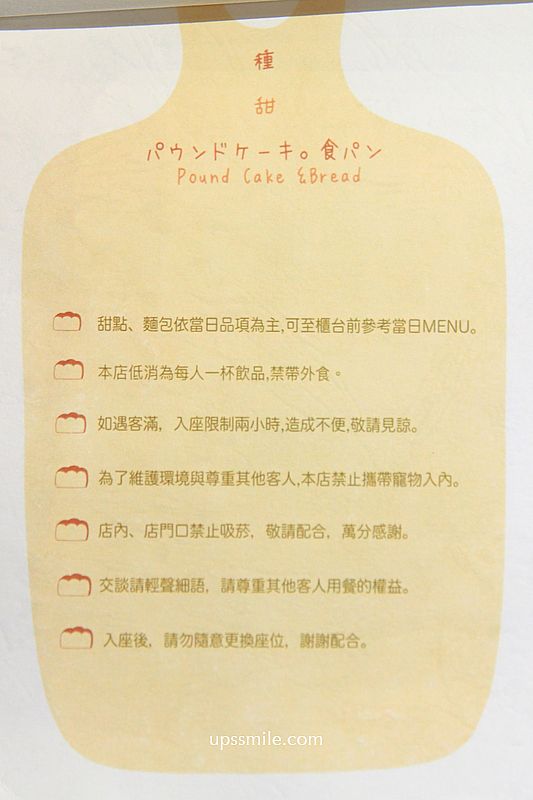 種
甜
パウンドケーキ。食パン
Pound Cake &Bread
甜點、麵包依當日品項為主,可至櫃台前參考當日MENU。
本店低消為每人一杯飲品,禁帶外食。
如遇客滿，入座限制兩小時,造成不便,敬請見諒。
為了維護環境與尊重其他客人,本店禁止攜帶寵物入內。
店內、店門口禁止吸菸，敬請配合，萬分感謝。
交談請輕聲細語，請尊重其他客人用餐的權益。
入座後，請勿隨意更換座位，謝謝配合。
upssmile.com